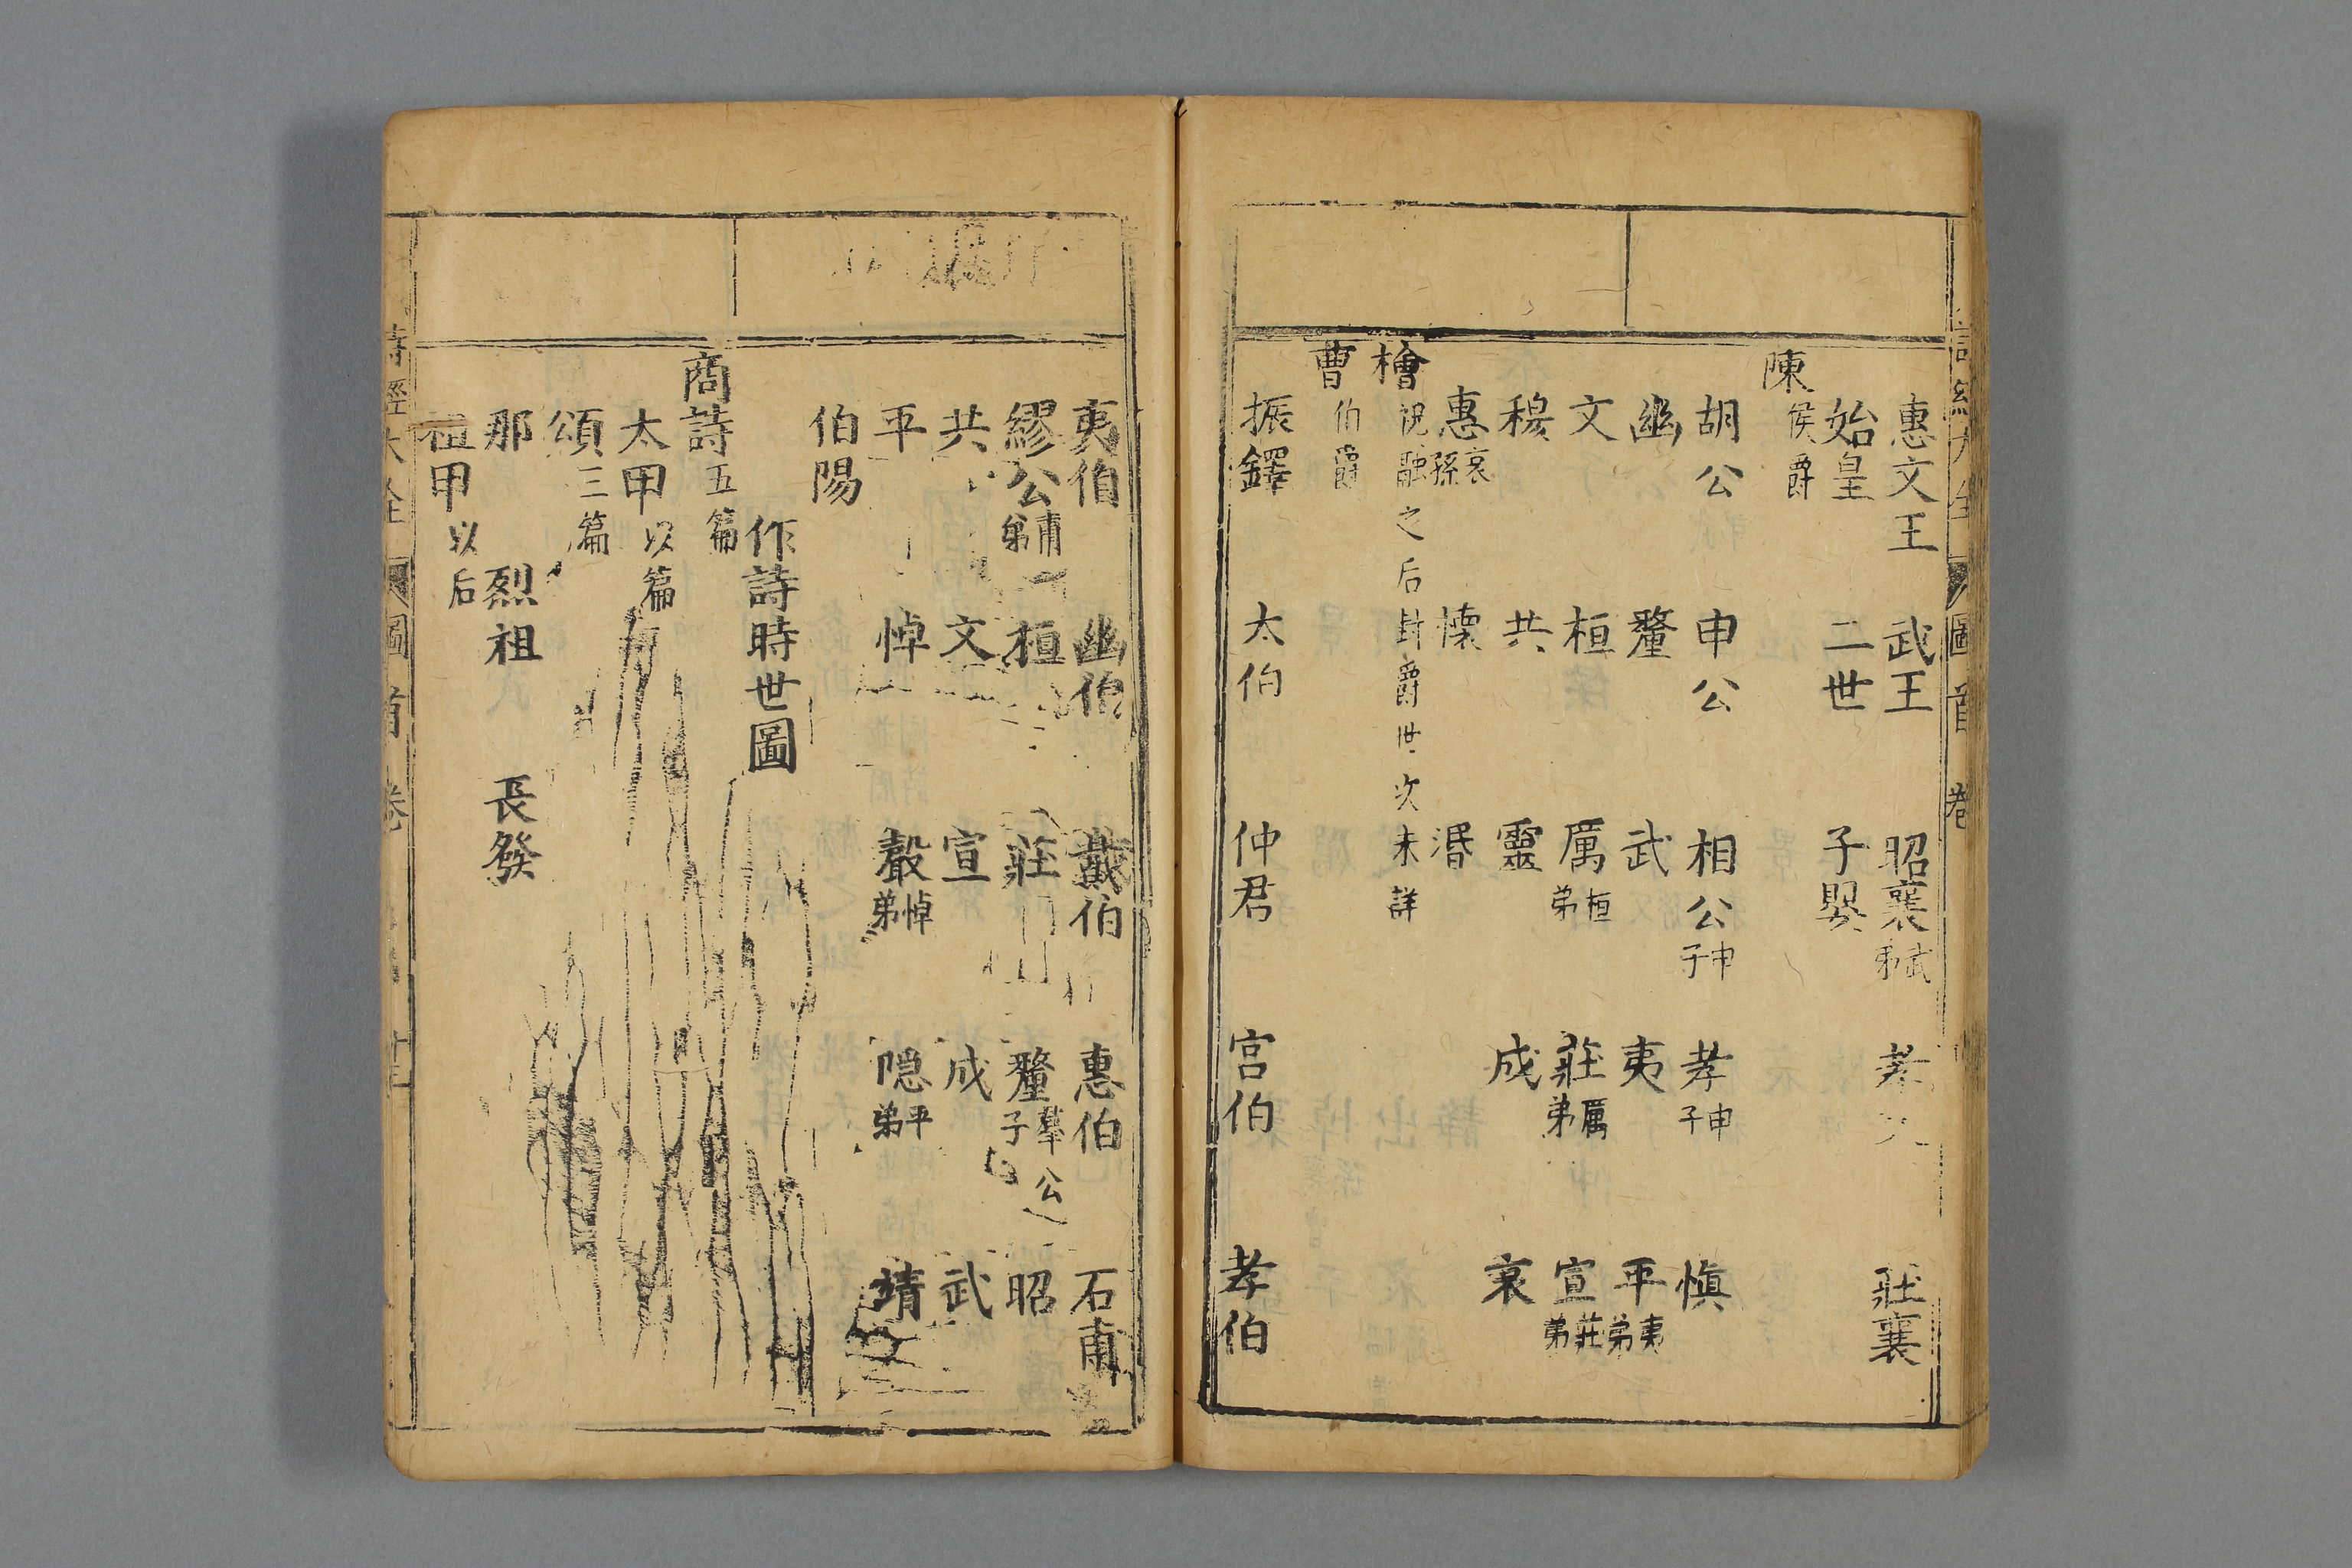 惠文王 武王 昭襄武弟 孝 莊襄
始皇 二世 子嬰
陳侯爵
胡公 申公 相公申子 孝申子 慎
幽 釐 武 夷 平夷弟
文 桓 厲桓弟 莊厲弟 宣莊弟
穆 共 靈 成 哀
惠哀孫 懷 湣
檜祝融之后封爵世次未詳
曹伯爵
振鐸 太伯 仲君 宮伯 孝伯
夷伯 幽伯 戴伯 惠伯 石甫
繆公甫弟 桓 莊 釐 昭
共 文 宣 成 武
平 悼 聲悼弟 隱平弟 靖
伯陽
作詩時世圖
商詩五篇
太甲以篇
頌三篇
那 烈祖 長發
祖甲以后
詩經大全 圖 首卷